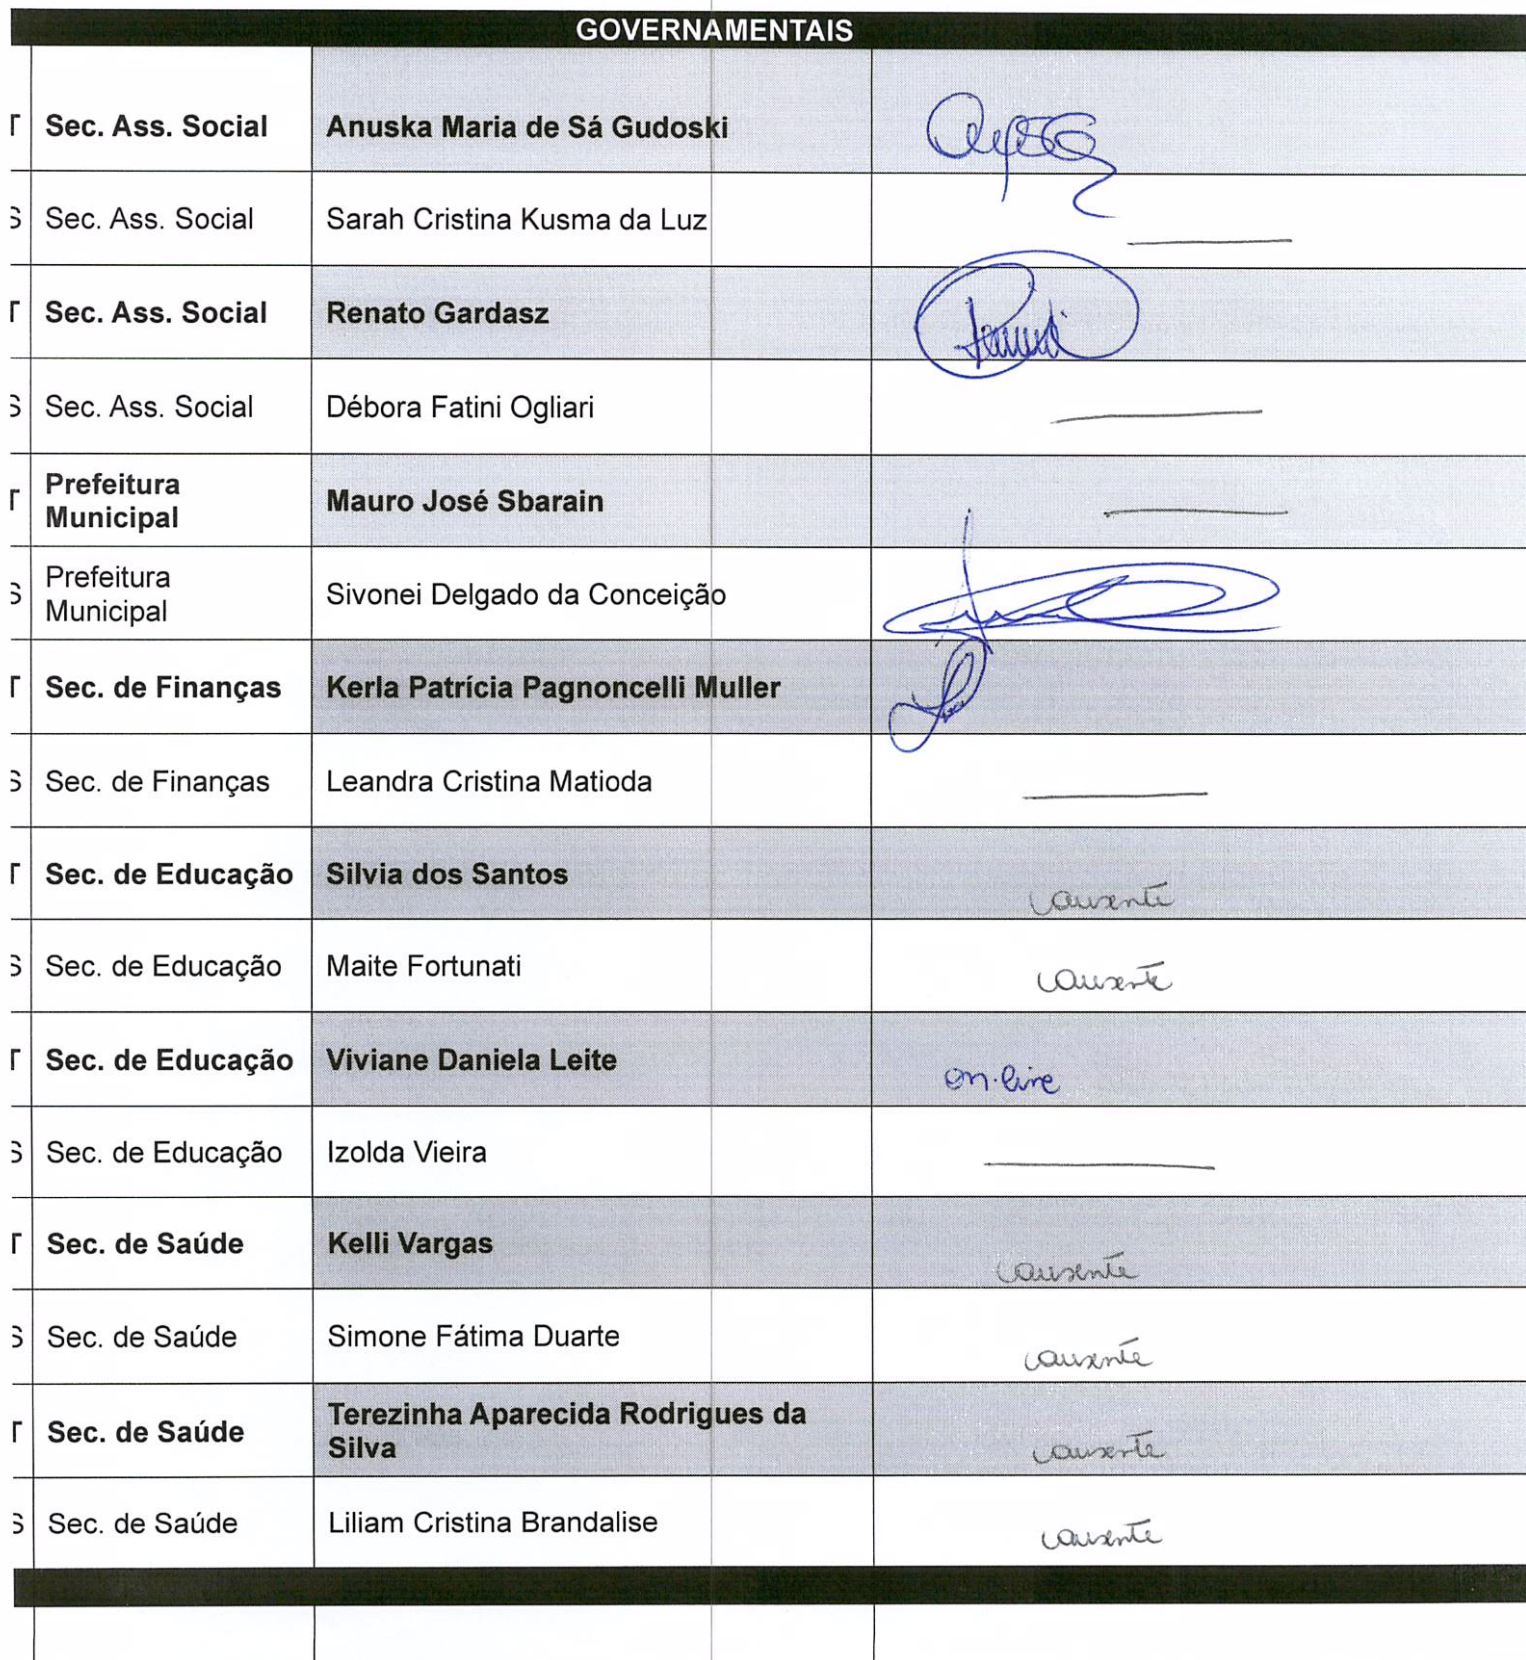 GOVERNAMENTAIS
T Sec. Ass. Social Anuska Maria de Sá Gudoski
S Sec. Ass. Social Sarah Cristina Kusma da Luz
T Sec. Ass. Social Renato Gardasz
S Sec. Ass. Social Débora Fatini Ogliari
T Prefeitura Municipal Mauro José Sbarain
S Prefeitura Municipal Sivonei Delgado da Conceição
T Sec. de Finanças Kerla Patrícia Pagnoncelli Muller
S Sec. de Finanças Leandra Cristina Matioda
T Sec. de Educação Silvia dos Santos ausente
S Sec. de Educação Maite Fortunati ausente
T Sec. de Educação Viviane Daniela Leite on-line
S Sec. de Educação Izolda Vieira
T Sec. de Saúde Kelli Vargas ausente
S Sec. de Saúde Simone Fátima Duarte ausente
T Sec. de Saúde Terezinha Aparecida Rodrigues da
Silva ausente
S Sec. de Saúde Liliam Cristina Brandalise ausente